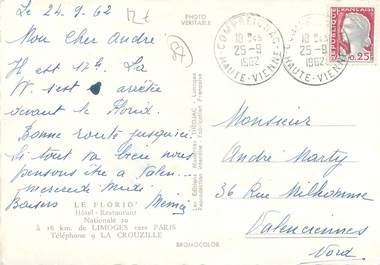 Le 24.9.62
Mon Cher André
Il est 17h. La
W. s'est arrêtée
devant le Florid.
Bonne route jusqu'ici.
Si tout va bien nous
pensons être à
mercredi midi
Baisers
LE FLORID'
Hôtel-Restaurant
Nationale 20
à 16 km. de LIMOGES vers PARIS
Téléphone 9 LA CROUZILLE
PHOTO
VERITABLE
Les Editions THEOJAC - Limoges
Reproduction Interdite - Fabrication Française
BROMOCOLOR
COMPREIGNAC
18 H45
25-9
1962
HAUTE-VIENNE
18 H45
25-9
1962
HAUTE-VIENNE
REPUBLIQUE FRANÇAISE
0,25
Monsieur
André Marty
36 Rue Milhomme
Valenciennes
Nord.